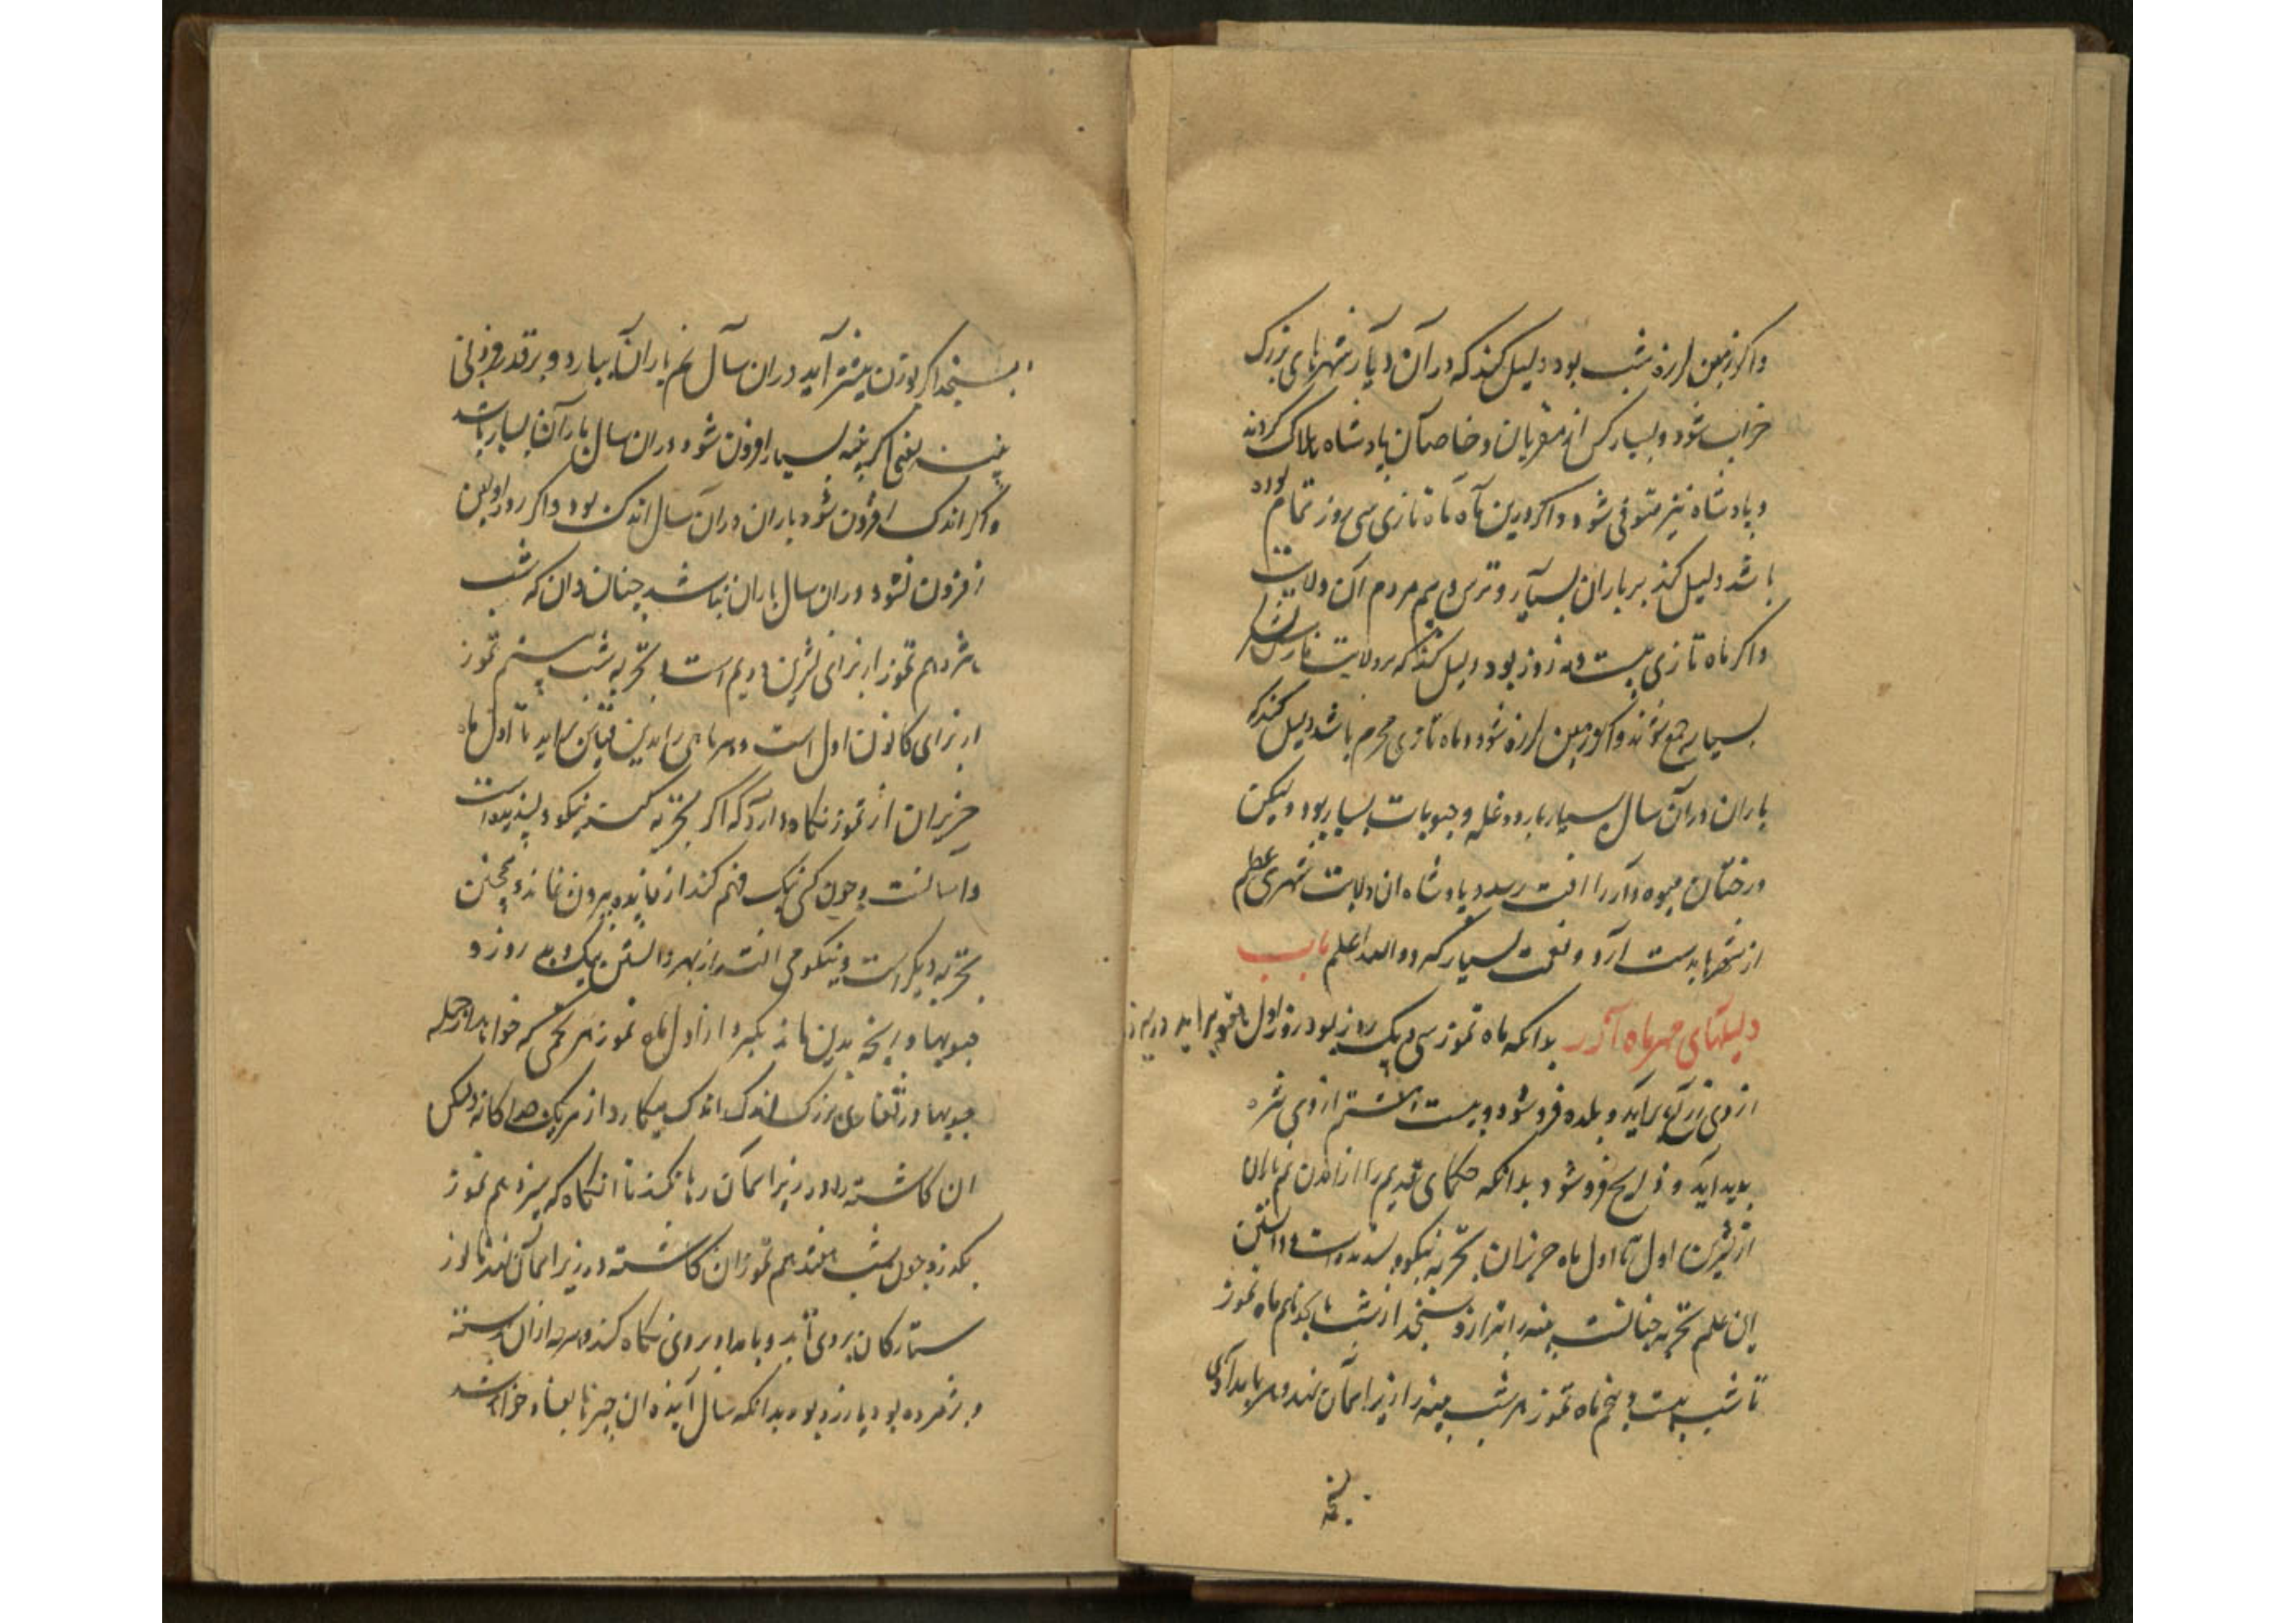 واکر زمین لرزه شب بود دلیل کند که در آن دیار شهرهای بزرک
خراب شود و بسیار کس از مقربان و خاصان پادشاه هلاک کردند
و پادشاه نیز متوفی شود و اکر درین ماه ماه تازی سی روز تمام بوده
باشد دلیل کند بر باران بسیار و ترس و بیم مردم آن ولایت
واکر ماه تازی بیست و نه روز بود دلیل کند که بر ولایت فارس لشکر
بسیار جمع شوند و اکر زمین لرزه شود و ماه تازی محرم باشد دلیل کند که
باران در آن سال بسیار بارد و غله و حبوبات بسیار بود ولیکن
درختان میوه دار را آفت رسد و پادشاه ان ولایت شهری عظیم
از شهرها بدست آرد و نعمت بسیار والله اعلم باب
دلیلهای مهر ماه آذر بدانکه ماه تموز سی و یک روز بود روز اول
از وی برآید و بلده فرو شود و بیست از وی نثره
پدید آید و ذابح فرو شود بدانکه حکمای قدیم را از آمدن نم باران
از تشرین اول تا اول ماه حزیران تجربه نیکو و پسندیده است و دانستن
این علم تجربه چنانست پنبه را بترازو بسنجد از شب ماه تموز
تا شب بیست و پنجم ماه تموز هر شب پنبه را زیر اسمان نهد و هر بامدادی
بسنجد
بسنجد اکر بوزن بیشتر آید دران سال نم باران بیارد و بر قدر فزونی
پنبه یعنی اکر پنبه بسیار افزون شود دران سال باران بسیار باشد
واکر اندک افزون شود باران دران سال اندک بود واکر
افزون نشود دران سال باران نباشد چنان دان که شب
تموز از برای تشرین دویم است و تجربه شب بیستم تموز
از برای کانون اول است و هر ماهی را بدین قیاس تا اول ماه
حزیران از تموز نکاه دارد که اکر تجربه نیکو و پسندیده است
و آسانست و چون کسی نیک فهم کند از فایده بیرون نماند و همچنین
تجربه دیکر است و نیکو از بهر دانستن نیک و بد روز و
حبوبها و بدین مانند بکیرد از اول ماه تموز هر تخمی که خواهد از جمله
حبوبها در بزرک اندک اندک میکارد از هر یک جداکانه ولیکن
ان کاشته را در زیر اسمان رها نکند تا انکاه که سیزدهم تموز
بکذرد چون شب هفدهم تموز ان کاشته در زیر اسمان نهد تا نور
ستارکان بروی آید و بامداد بروی نکاه کند و هر چه ازان رسته
و پژمرده بود یا زرد بود بدانکه سال آینده ان چیز تباه خواهد شد